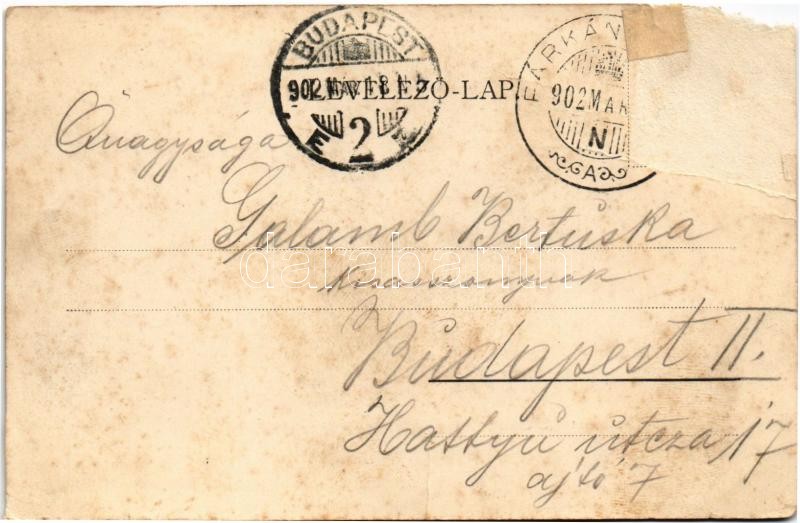 BUDAPEST
902 MÁJ 18
E 2
LEVELEZŐ-LAP.
PÁRKÁN
902 MÁ
N
GA
Őnagysága
Galamb Bertuska
kisasszonynak
Budapest II.
Hattyú utcza 17
ajtó 7
darabanth